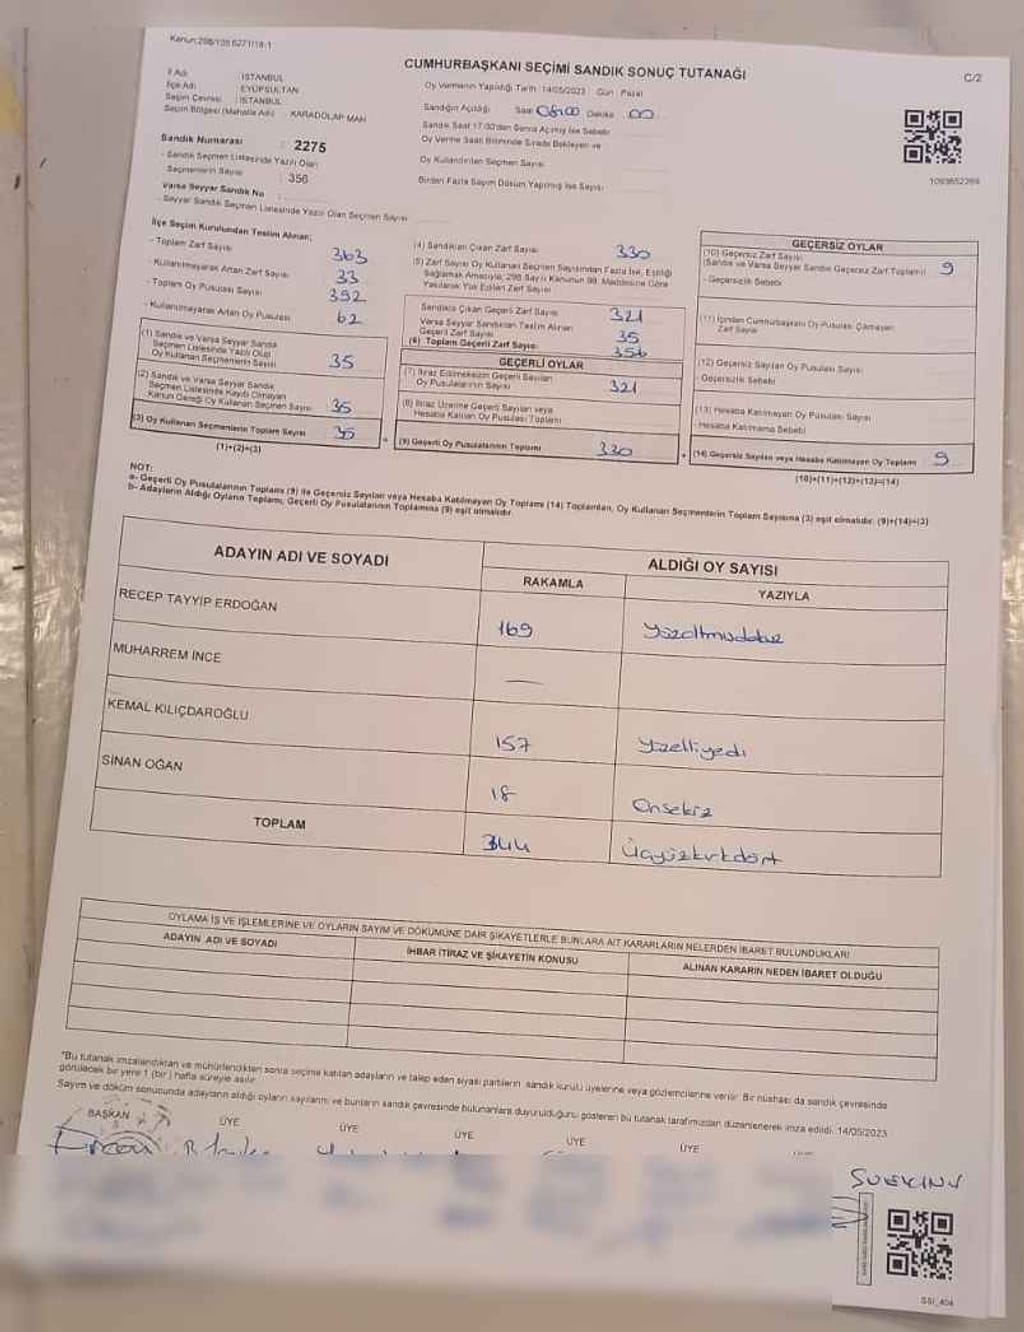 Kanun:298/105 6271/18-1
CUMHURBAŞKANI SEÇİMİ SANDIK SONUÇ TUTANAĞI
C/2
İl Adı : İSTANBUL
İlçe Adı : EYÜPSULTAN
Seçim Çevresi : İSTANBUL
Seçim Bölgesi (Mahalle Adı) : KARADOLAP MAH
Sandık Numarası : 2275
- Sandık Seçmen Listesinde Yazılı Olan
Seçmenlerin Sayısı : 356
Varsa Seyyar Sandık No :
- Seyyar Sandık Seçmen Listesinde Yazılı Olan Seçmen Sayısı
Oy Vermenin Yapıldığı Tarih: 14/05/2023 Gün : Pazar
Sandığın Açıldığı Saat 08:00 Dakika 00
Sandık Saat 17:00'den Sonra Açılmış İse Sebebi
Oy Verme Saati Bitiminde Sırada Bekleyen ve
Oy Kullandırılan Seçmen Sayısı
Birden Fazla Sayım Döküm Yapılmış İse Sayısı
İlçe Seçim Kurulundan Teslim Alınan;
- Toplam Zarf Sayısı 363
- Kullanılmayarak Artan Zarf Sayısı 33
- Toplam Oy Pusulası Sayısı 392
- Kullanılmayarak Artan Oy Pusulası 62
(1) Sandık ve Varsa Seyyar Sandık
Seçmen Listesinde Yazılı Olup
Oy Kullanan Seçmenlerin Sayısı 35
(2) Sandık ve Varsa Seyyar Sandık
Seçmen Listesinde Kayıtlı Olmayan
Kanun Gereği Oy Kullanan Seçmen Sayısı 35
(3) Oy Kullanan Seçmenlerin Toplam Sayısı 35
(1)+(2)=(3)
(4) Sandıktan Çıkan Zarf Sayısı 330
(5) Zarf Sayısı Oy Kullanan Seçmen Sayısından Fazla İse, Eşitliği
Sağlamak Amacıyla, 298 Sayılı Kanunun 98. Maddesine Göre
Yakılarak Yok Edilen Zarf Sayısı
Sandıkta Çıkan Geçerli Zarf Sayısı 321
Varsa Seyyar Sandıktan Teslim Alınan
Geçerli Zarf Sayısı 35
(6) Toplam Geçerli Zarf Sayısı 356
GEÇERLİ OYLAR
(7) İtiraz Edilmeksizin Geçerli Sayılan
Oy Pusulalarının Sayısı 321
(8) İtiraz Üzerine Geçerli Sayılan veya
Hesaba Katılan Oy Pusulası Toplamı
(9) Geçerli Oy Pusulalarının Toplamı 330
GEÇERSİZ OYLAR
(10) Geçersiz Zarf Sayısı
(Sandık ve Varsa Seyyar Sandık Geçersiz Zarf Toplamı) 9
- Geçersizlik Sebebi
(11) İçinden Cumhurbaşkanı Oy Pusulası Çıkmayan
Zarf Sayısı
(12) Geçersiz Sayılan Oy Pusulası Sayısı
- Geçersizlik Sebebi
(13) Hesaba Katılmayan Oy Pusulası Sayısı
- Hesaba Katılmama Sebebi
(14) Geçersiz Sayılan veya Hesaba Katılmayan Oy Toplamı 9
(10)+(11)+(12)+(13)=(14)
NOT:
a- Geçerli Oy Pusulalarının Toplamı (9) ile Geçersiz Sayılan veya Hesaba Katılmayan Oy Toplamı (14) Toplamları, Oy Kullanan Seçmenlerin Toplam Sayısına (3) eşit olmalıdır. (9)+(14)=(3)
b- Adayların Aldığı Oyların Toplamı, Geçerli Oy Pusulalarının Toplamına (9) eşit olmalıdır.
ADAYIN ADI VE SOYADI
ALDIĞI OY SAYISI
RAKAMLA
YAZIYLA
RECEP TAYYİP ERDOĞAN 169 Yüzaltmışdokuz
MUHARREM İNCE —
KEMAL KILIÇDAROĞLU 157 Yüzelliyedi
SİNAN OĞAN 18 Onsekiz
TOPLAM 344 Üçyüzkırkdört
OYLAMA İŞ VE İŞLEMLERİNE VE OYLARIN SAYIM VE DÖKÜMÜNE DAİR ŞİKAYETLERLE BUNLARA AİT KARARLARIN NELERDEN İBARET BULUNDUKLARI
ADAYIN ADI VE SOYADI
İHBAR İTİRAZ VE ŞİKAYETİN KONUSU
ALINAN KARARIN NEDEN İBARET OLDUĞU
"Bu tutanak imzalandıktan ve mühürlendikten sonra seçime katılan adayların ve talep eden siyasi partilerin sandık kurulu üyelerine veya gözlemcilerine verilir. Bir nüshası da sandık çevresinde
görülecek bir yere 1 (bir) hafta süreyle asılır.
Sayım ve döküm sonucunda adayların aldığı oyların sayılarını ve bunların sandık çevresinde bulunanlara duyurulduğunu gösteren bu tutanak tarafımızdan düzenlenerek imza edildi. 14/05/2023
BAŞKAN
ÜYE
ÜYE
ÜYE
ÜYE
ÜYE
SSİ_404